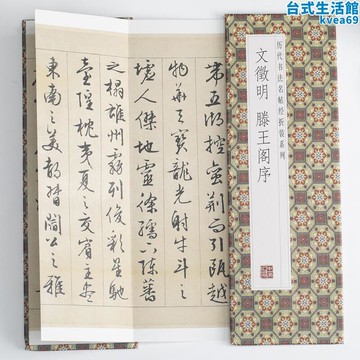 台式生活館
kvea69
历代书法名帖经折装系列
文徵明 滕王阁序
帶五湖控蠻荆而引甌越
物華天寶龍光射牛斗之
墟人傑地靈徐孺下陳蕃
之榻雄州霧列俊彩星馳
臺隍枕夷夏之交賓主盡
東南之美都督閻公之雅